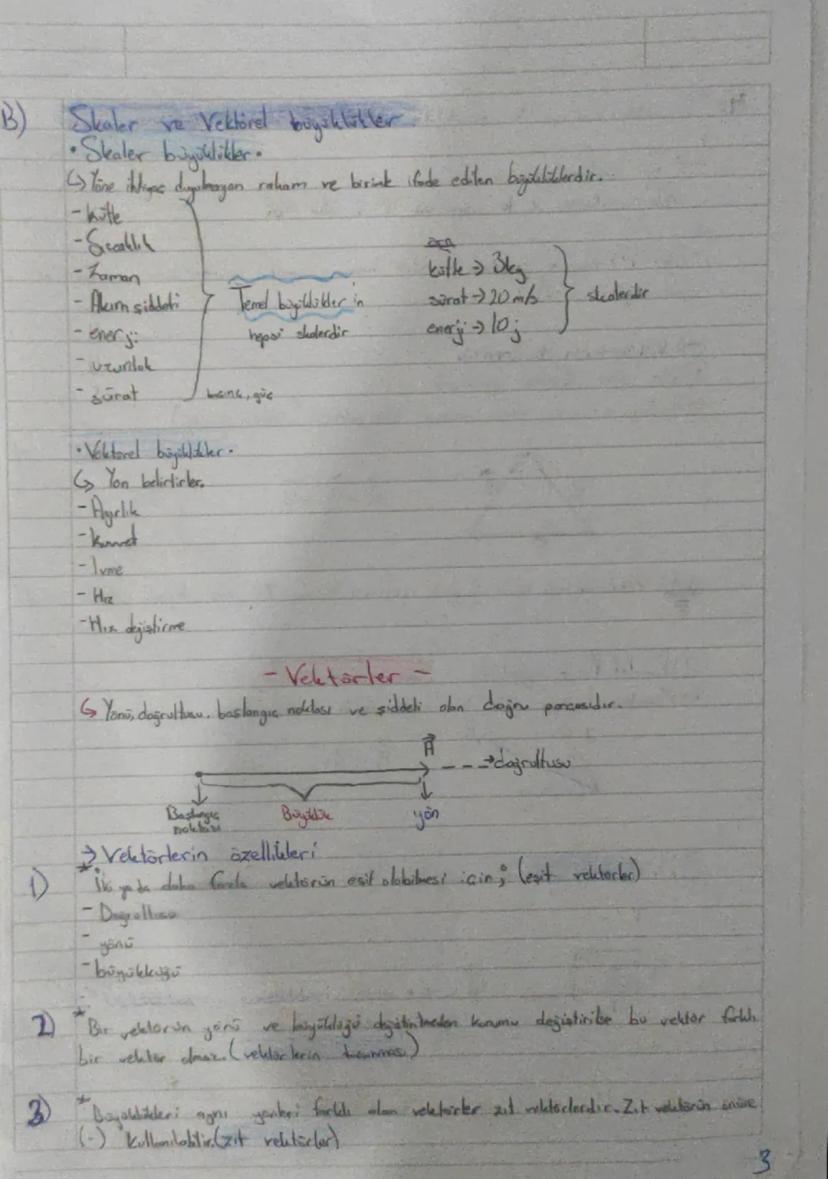 B) Skaler ve Vektörel büyüklükler
• Skaler büyüklükler.
↳ Yöne ihtiyaç duyulmayan rakam ve birimle ifade edilen büyüklüklerdir.
- kütle
- Sıcaklık
- Zaman
- Akım şiddeti
- enerji
- uzunluk
- sürat
Temel büyüklükler in
hepsi skalerdir
basınç, güç
kütle → 3kg
sürat → 20 m/s
enerji → 10 j
skalerdir
• Vektörel büyüklükler.
↳ Yön belirtirler.
- Ağırlık
- kuvvet
- İvme
- Hız
- Hız değiştirme
- Vektörler -
↳ Yönü, doğrultusu, başlangıç noktası ve şiddeti olan doğru parçasıdır.
A
→ doğrultusu
Başlangıç noktası
Büyüklük
yön
→ Vektörlerin özellikleri
1) * İki ya da daha fazla vektörün eşit olabilmesi için; (eşit vektörler)
- Doğrultusu
- yönü
- büyüklüğü
2) * Bir vektörün yönü ve büyüklüğü değiştirilmeden konumu değiştirilse bu vektör farklı
bir vektör olmaz. (vektörlerin taşınması)
3) * Büyüklükleri aynı yönleri farklı olan vektörler zıt vektörlerdir. Zıt vektörün önüne
(-) kullanılabilir. (zıt vektörler)
3